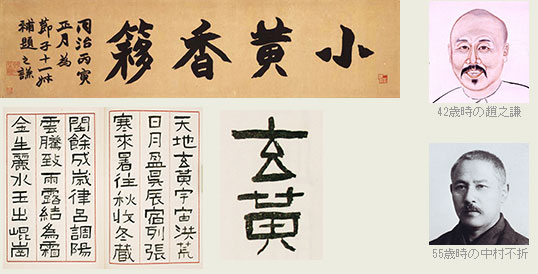 小黄香簃
同治丙寅
正月為
節子十一
補題之謙
42歳時の趙之謙
天地玄黄宇宙洪荒
日月盈昃辰宿列張
寒來暑往秋收冬藏
閏餘成歲律呂調陽
雲騰致雨露結為霜
金生麗水玉出崐崗
玄黄
55歳時の中村不折